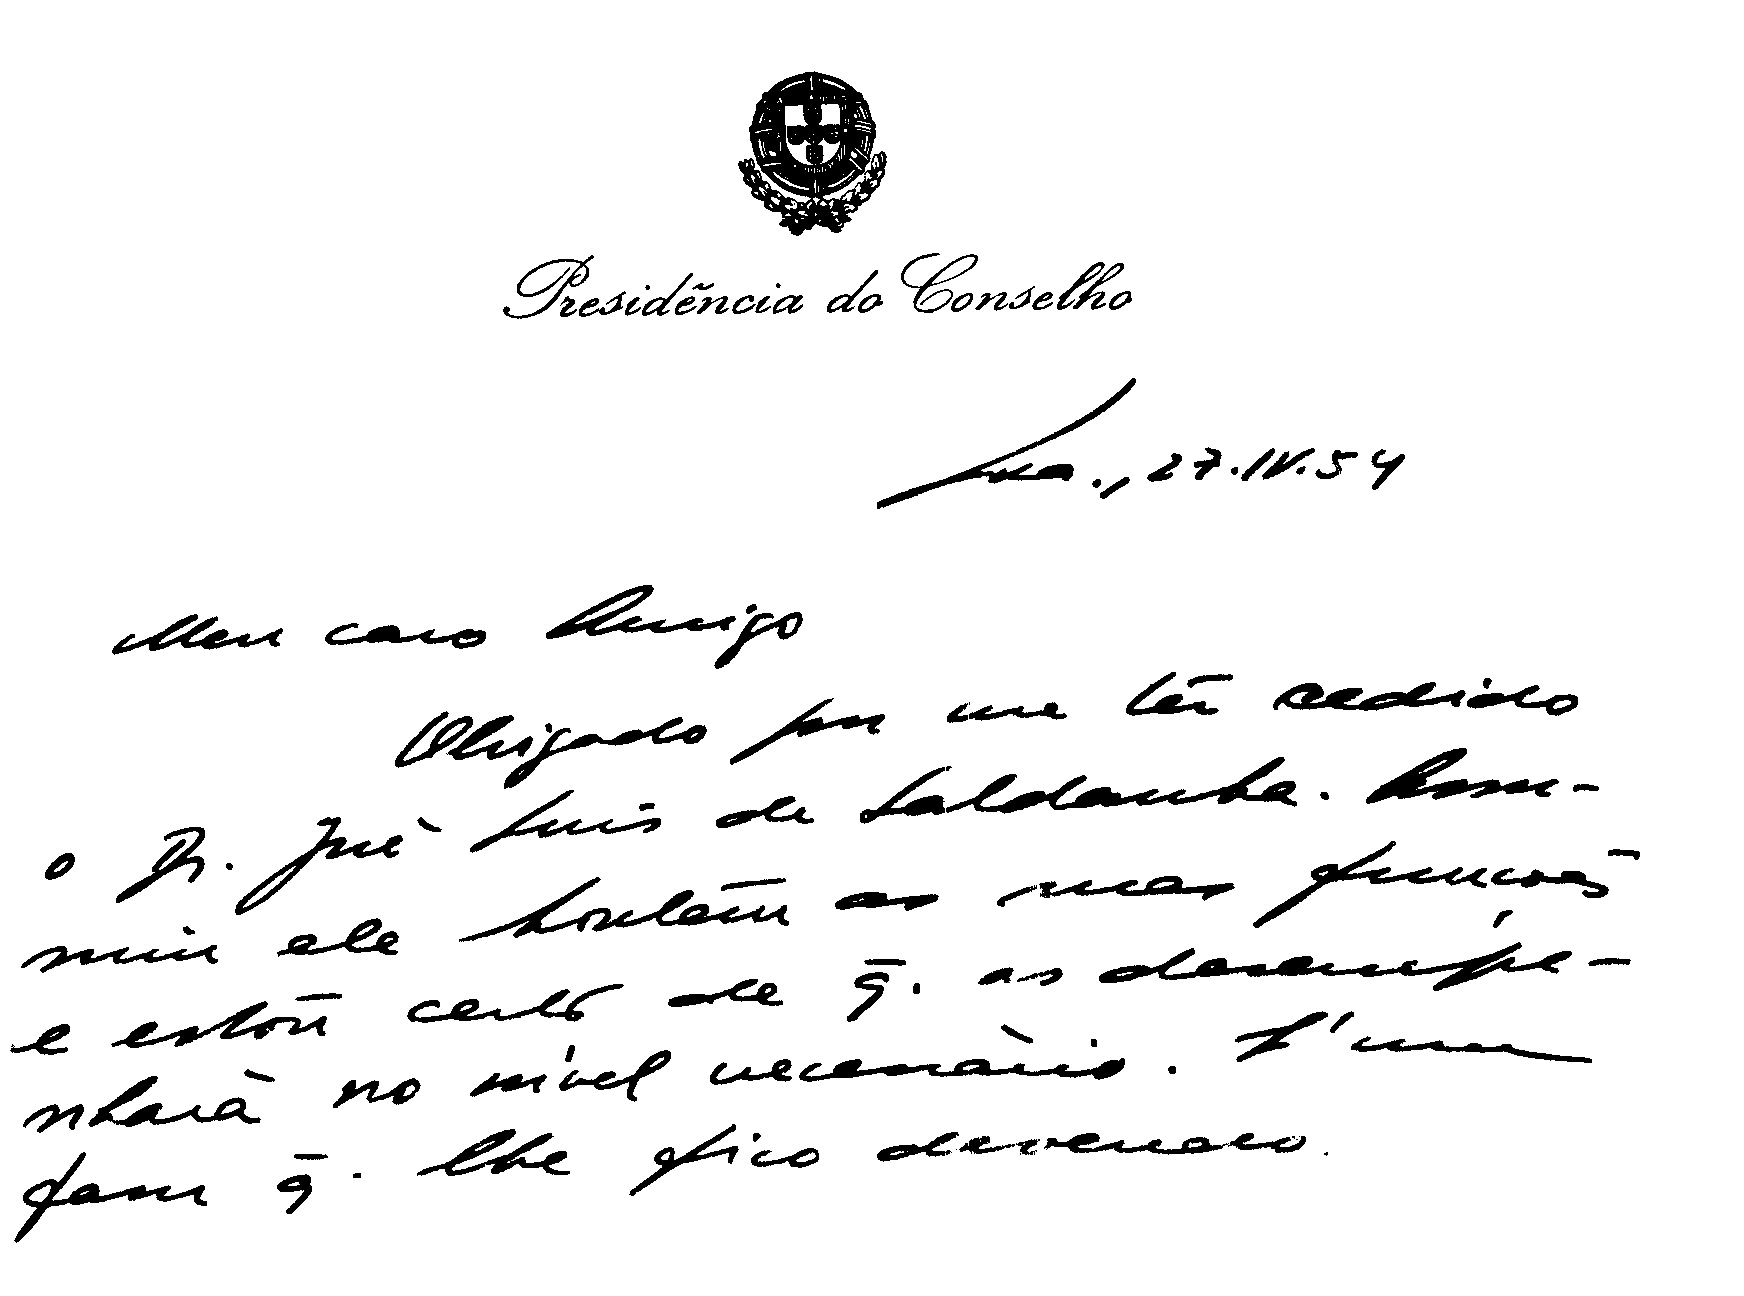 Presidência do Conselho
Lxa., 27.IV.54
Meu caro Amigo
Obrigado por me ter cedido
o Dr. José Luis de Saldanha. Assu-
miu ele hontem as suas funções
e estou certo de q. as desempe-
nhará no nível necessário. É um
favor q. lhe fico devendo.